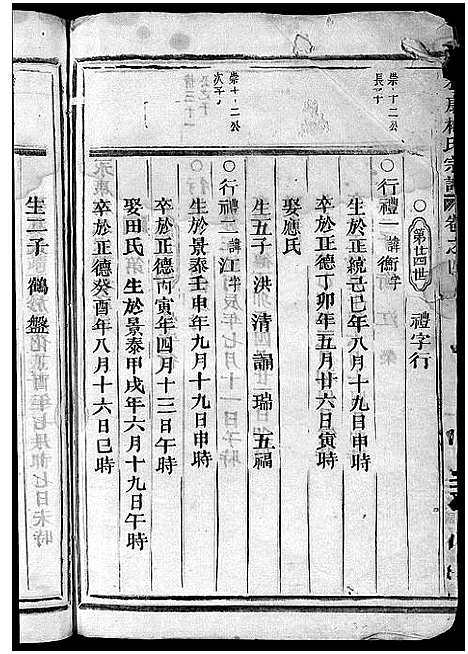 氏宗譜 卷之四
○第廿四世 禮字行
崇十二公
長子
○行禮一諱衡字
生於正統己巳年八月十九日申時
卒於正德丁卯年五月廿六日寅時
娶應氏
生五子 洪 清 論 瑞 五福
崇十二公
次子
○行禮二諱江字
生於景泰壬申年九月十九日申時
卒於正德丙寅年四月十三日午時
娶田氏 生於景泰甲戌年六月十九日午時
卒於正德癸酉年八月十六日巳時
生二子 鶴 盤